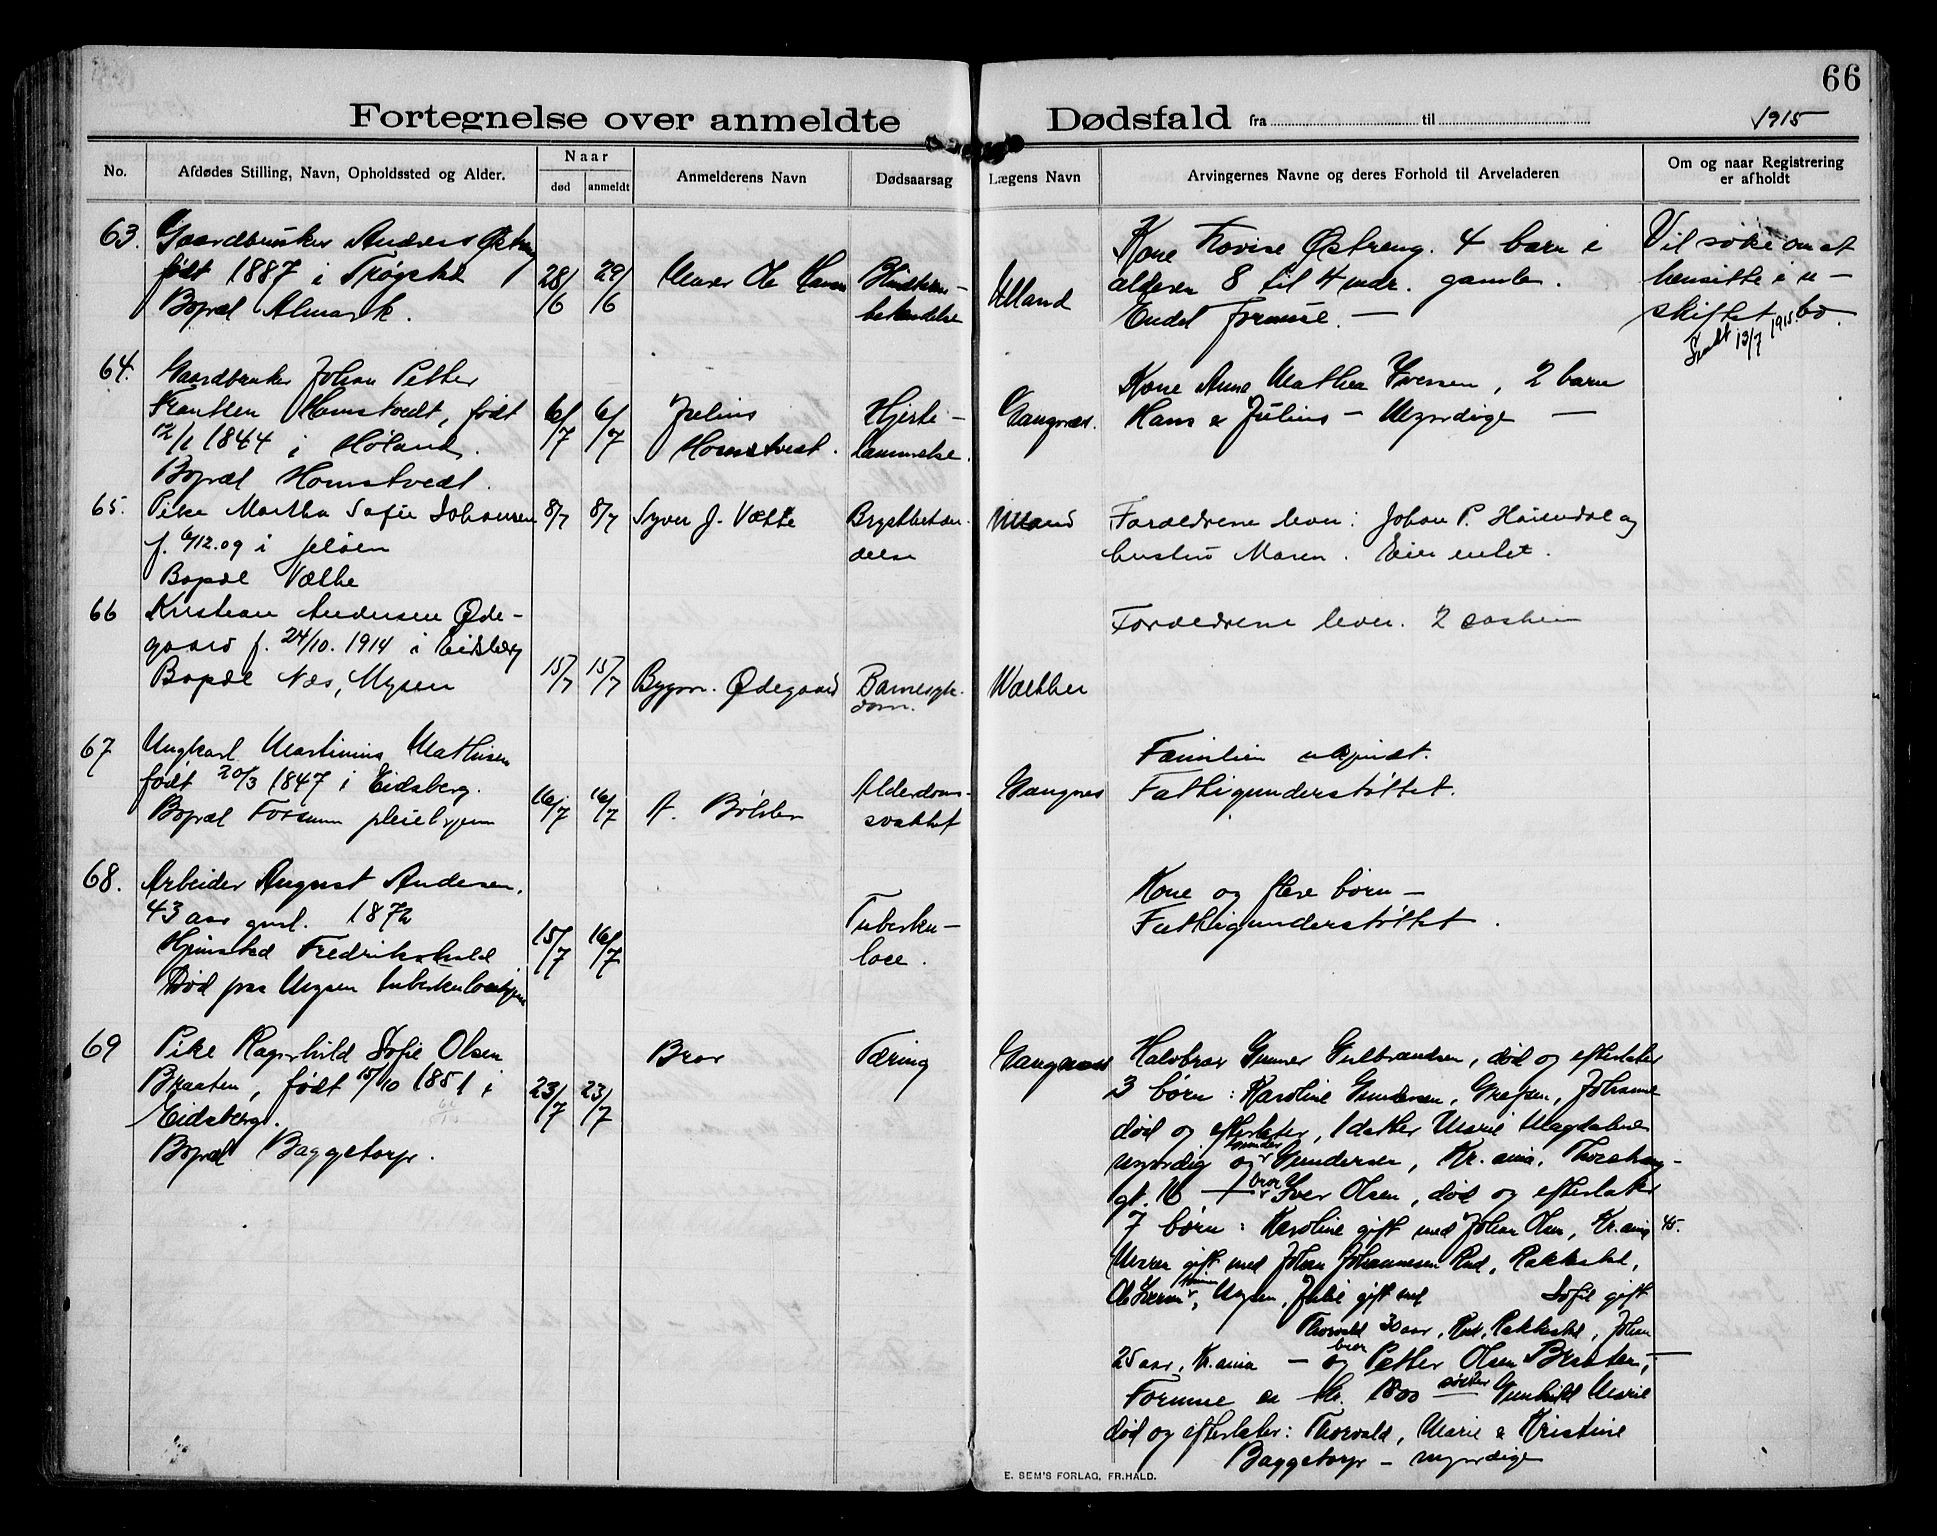 66
Fortegnelse over anmeldte Dødsfald fra til 1915
No.
Afdødes Stilling, Navn, Opholdssted og Alder.
Naar
død
anmeldt
Anmelderens Navn
Dødsaarsag
Lægens Navn
Arvingernes Navne og deres Forhold til Arveladeren
Om og naar Registrering
er afholdt
63.
Gaardbruker Anders Østreng
født 1887 i Trøgstad
Bopæl Almark.
28/6
29/6
Ole
Blindtarm-
betændelse
Ulland
Kone Lovise Østreng. 4 barn i
alderen 8 til 4 mdr. gamle.
Endel formue. —
Vil søke om at
hensitte i u-
skiftet bo.
13/7 1915.
64.
Gaardbruker Johan Petter
Frantsen Homstvedt, født
12/1 1844 i Høland.
Bopæl Homstvedt.
6/7
6/7
Julius
Homstvedt.
Hjerte-
lammelse.
Gangnæs.
Kone Anna Mathea Iversen, 2 barn
Hans & Julius – Myndige —
65.
Pike Martha Sofie Johansen
f. 6/12.09 i Jeløen
Bopæl Vælhe
8/7
8/7
Syver J.
Brystbetæn-
delse
Ulland
Forældrene lever: Johan P. og
hustru Maren. Eier intet.
66
Kristian Andersen Øde-
gaard f. 24/10. 1914 i Eidsberg
Bopæl Næs, Mysen
15/7
15/7
Bygm. Ødegaard
Barnesyk-
dom.
Walther
Forældrene lever. 2 søsken
67
Ungkarl Martinius Mathisen
født 20/3 1847 i Eidsberg.
Bopæl Fossum pleiehjem
16/7
16/7
A. Bøhler
Alderdoms-
svakhet
Gangnes
Familien ukjendt.
Fattigunderstøttet.
68.
Arbeider August Andersen.
43 aar gml. 1872
Hjemsted Fredrikshald
Død paa Mysen tuberkulosehjem
15/7
16/7
Tuberku-
lose.
Kone og flere børn –
Fattigunderstøttet.
69
Pike Ragnhild Sofie Olsen
Braaten, født 15/10 1851 i
Eidsberg.
Bopæl Baggetorp.
23/7
23/7
Bror
Tæring
Gangnæs
Halvbror Gunner Gulbrandsen, død og efterlater
3 børn: Karoline Gundersen, Grefsen, Johanne
død og efterlater, 1 datter Marie Magdalene
myndig og Gundersen, Kr.ania,
gt. 16 — bror Iver Olsen, død og efterlater
7 børn: Karoline gift med Johan Olsen, Kr.ania 45.
Maren gift med Johan Johannesen Rud, Rakkestad,
Ole Mysen, Julie gift med Sofie gift
Thorvald 30 aar, Rud, Rakkestad, Johan
25 aar, Kr.ania — og bror Petter Olsen Braaten, —
Formue ca kr. 1800 søster Gunhild Marie
død og efterlater: Thorvald, Marie & Kristine
Baggetorp – myndige
E. SEM'S FORLAG, FR.HALD.